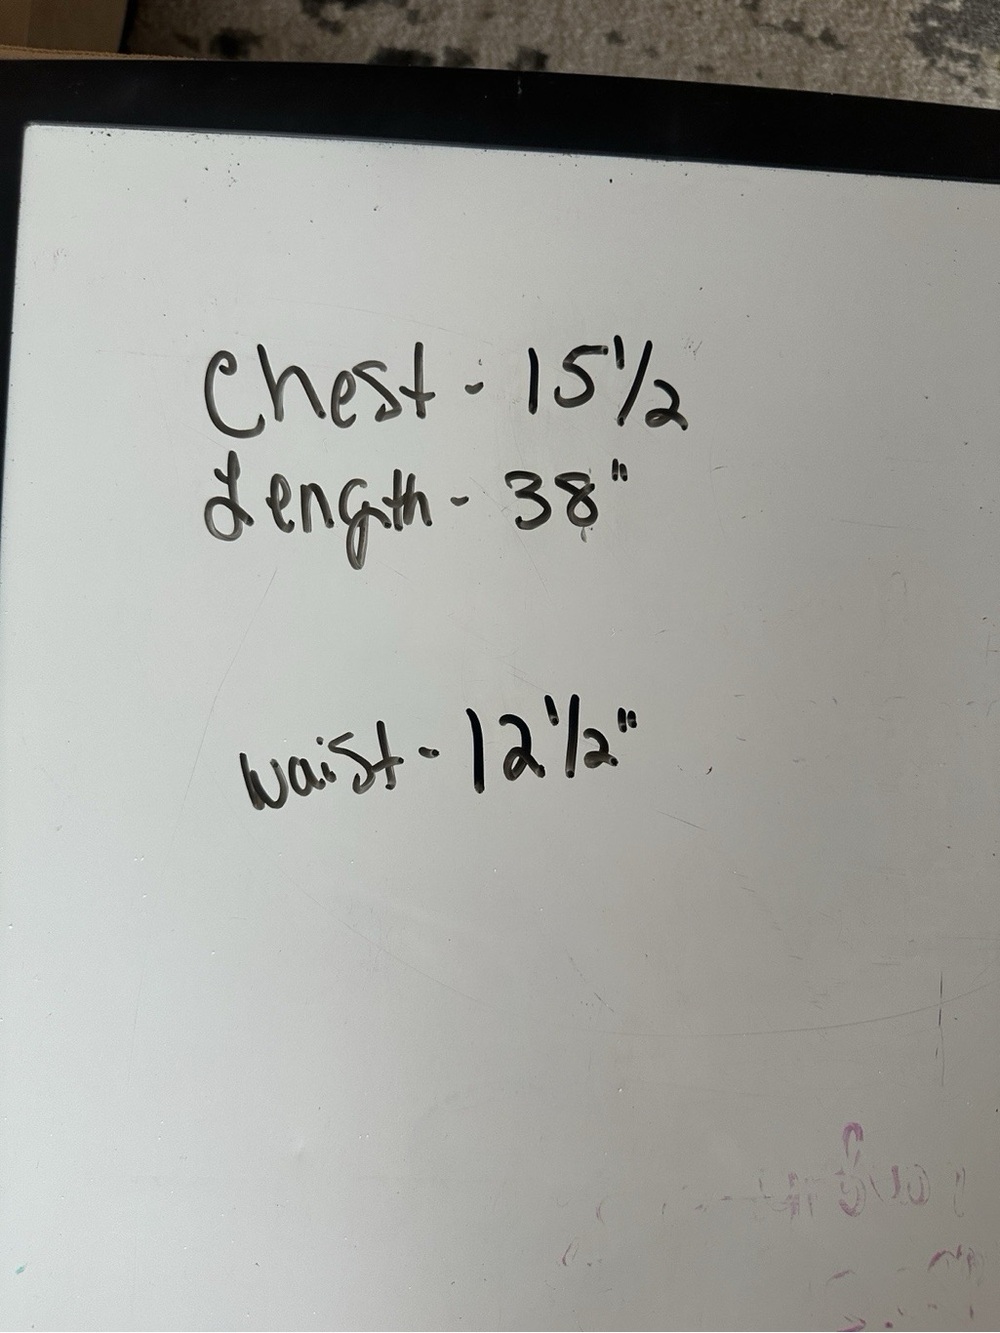 Chest - 15 1/2
Length - 38"
waist - 12 1/2"